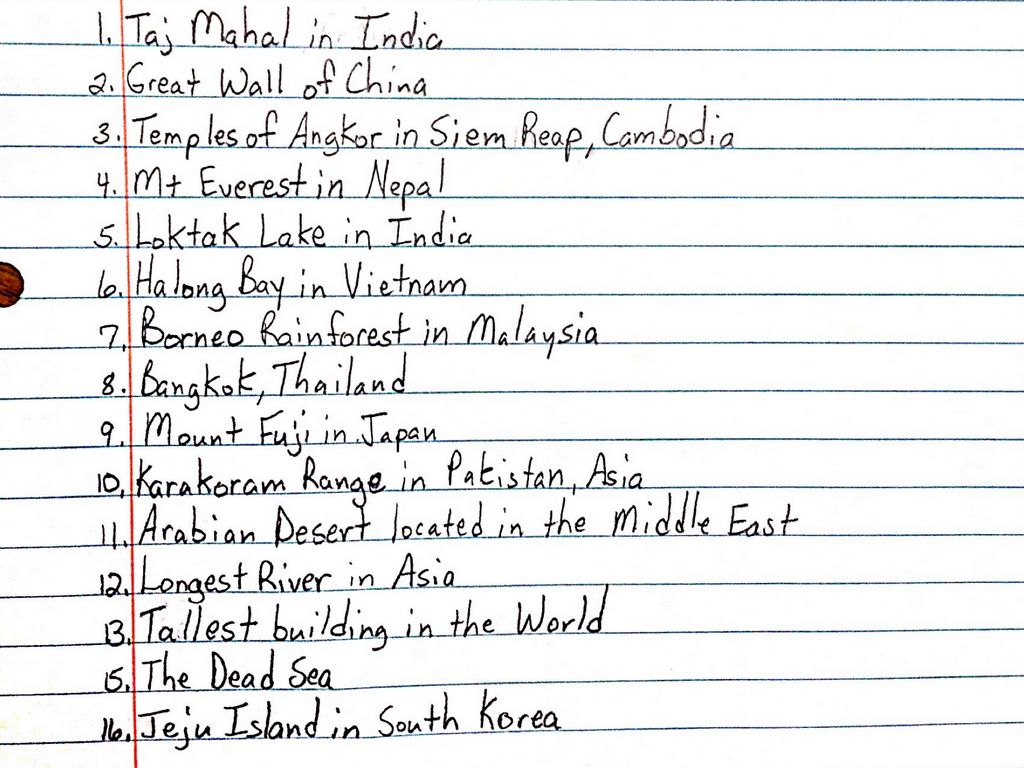 1. Taj Mahal in India
2. Great Wall of China
3. Temples of Angkor in Siem Reap, Cambodia
4. Mt Everest in Nepal
5. Loktak Lake in India
6. Halong Bay in Vietnam
7. Borneo Rainforest in Malaysia
8. Bangkok, Thailand
9. Mount Fuji in Japan
10. Karakoram Range in Pakistan, Asia
11. Arabian Desert located in the Middle East
12. Longest River in Asia
13. Tallest building in the World
15. The Dead Sea
16. Jeju Island in South Korea